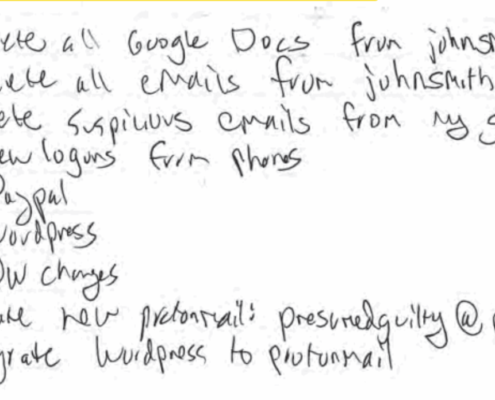 ete all Google Docs from johnsm
ete all emails from johnsmith
ete suspicious emails from my g
ew logons from phones
Paypal
wordpress
PW changes
ate new protonmail: presumedguilty@p
grate wordpress to protonmail